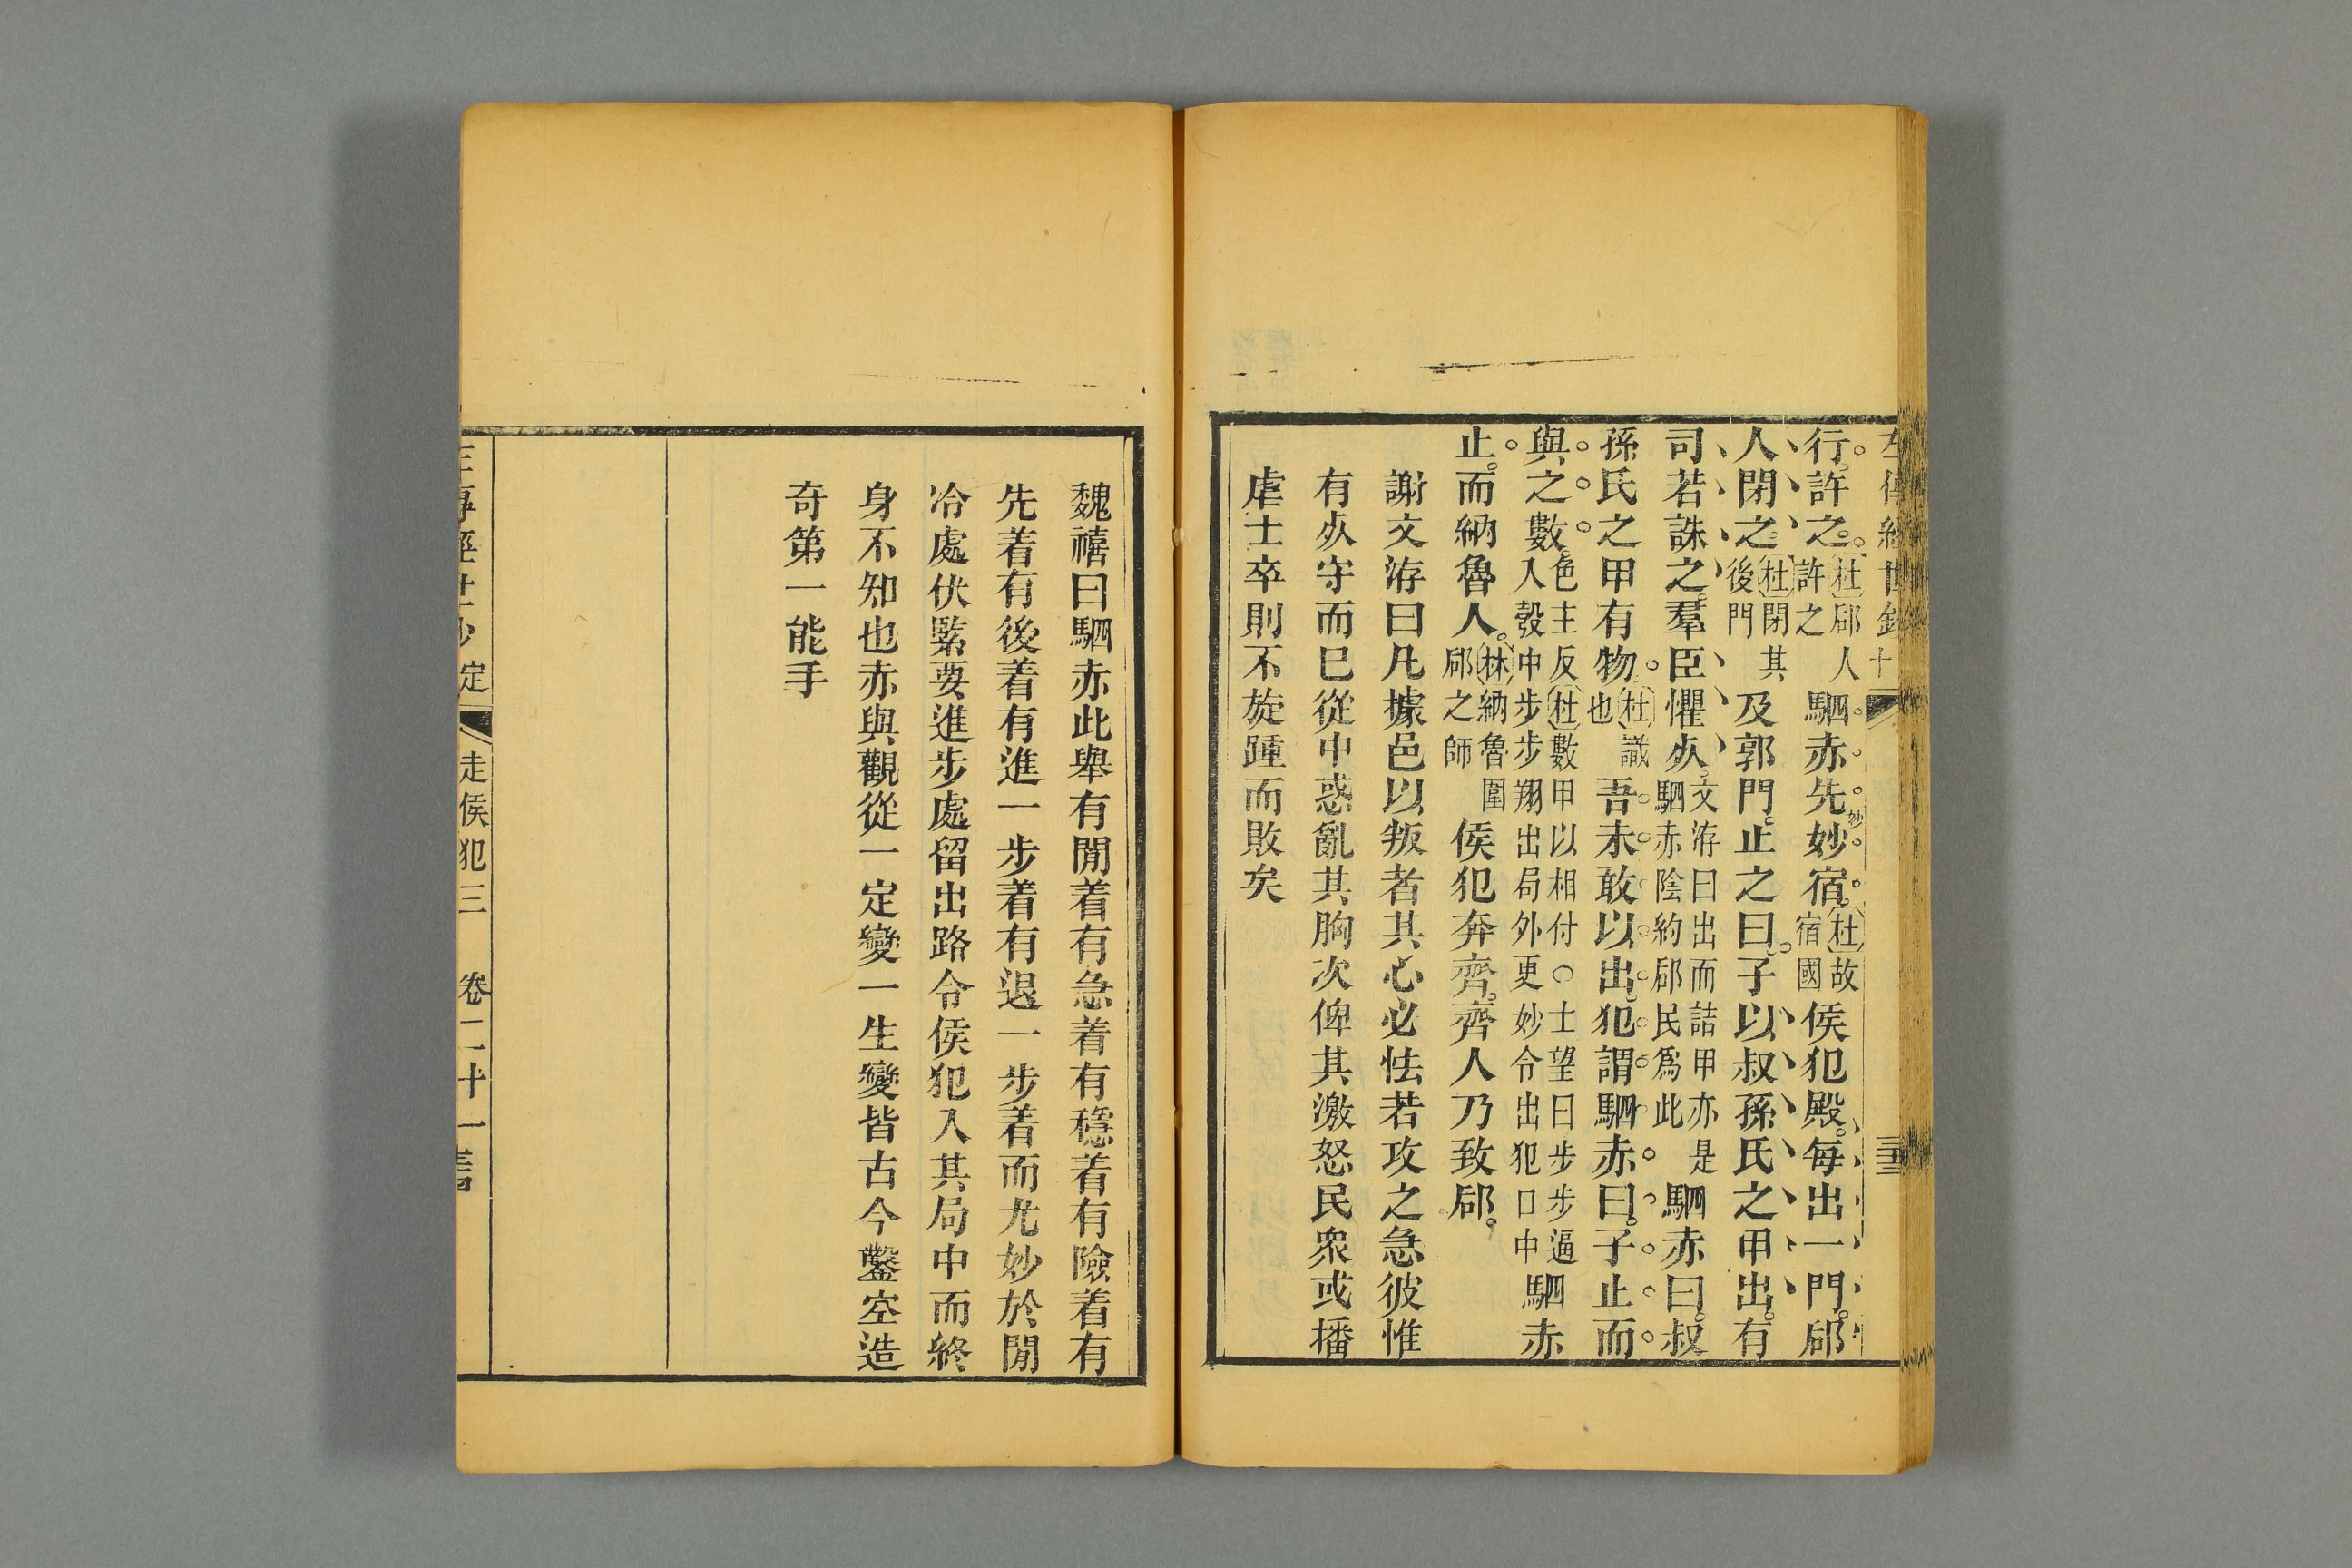 行。許之。杜郈人許之駟赤先妙妙宿。杜故宿國侯犯殿。每出一門。郈
人閉之。杜閉其後門及郭門。止之曰。子以叔孫氏之甲出。有
司若誅之。羣臣懼死。文洊曰出而詰甲亦是駟赤陰約郈民爲此駟赤曰。叔
孫氏之甲有物。杜識也吾未敢以出。犯謂駟赤曰。子止而
與之數。色主反杜數甲以相付○士望曰步步逼入彀中步步翔出局外更妙令出犯口中駟赤
止。而納魯人。林納魯圍郈之師侯犯奔齊。齊人乃致郈。
謝文洊曰凡據邑以叛者其心必怯若攻之急彼惟
有死守而已從中惑亂其胸次俾其激怒民衆或播
虐士卒則不旋踵而敗矣
魏禧曰駟赤此舉有閒着有急着有穩着有險着有
先着有後着有進一步着有退一步着而尤妙於閒
冷處伏緊要進步處留出路令侯犯入其局中而終
身不知也赤與觀從一定變一生變皆古今鑿空造
奇第一能手
定 走侯犯三 卷二十一